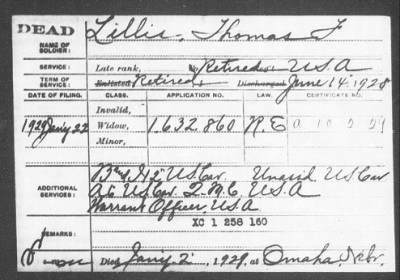 DEAD
NAME OF SOLDIER: Lillis, Thomas F
SERVICE: Late rank, Retired, USA
TERM OF SERVICE: Enlisted Retired, Discharged June 14, 1928
DATE OF FILING. CLASS. APPLICATION NO. LAW. CERTIFICATE NO.
Invalid,
1929 Jan'y 22 Widow, 1.632.860 R.E a 10 2 29
Minor,
ADDITIONAL SERVICES: Band 12 US Cav. Unasgd. US Cav
US Cav. Q.M.C, U.S.A
Warrant Officer, U.S.A
XC 1 258 160
REMARKS:
Died Jan'y 2, 1929, at Omaha, Nebr.